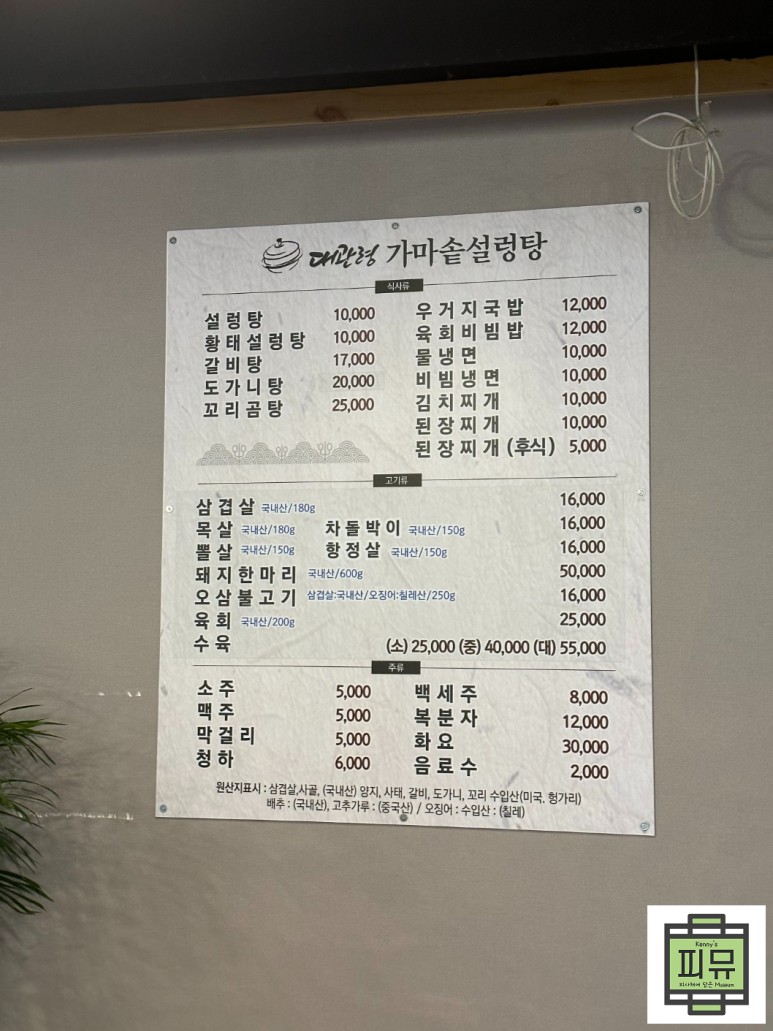 대관령 가마솥설렁탕
식사류
설렁탕 10,000
황태설렁탕 10,000
갈비탕 17,000
도가니탕 20,000
꼬리곰탕 25,000
우거지국밥 12,000
육회비빔밥 12,000
물냉면 10,000
비빔냉면 10,000
김치찌개 10,000
된장찌개 10,000
된장찌개 (후식) 5,000
고기류
삼겹살 국내산/180g 16,000
목살 국내산/180g 차돌박이 국내산/150g 16,000
뽈살 국내산/150g 항정살 국내산/150g 16,000
돼지한마리 국내산/600g 50,000
오삼불고기 삼겹살:국내산/오징어:칠레산/250g 16,000
육회 국내산/200g 25,000
수육 (소) 25,000 (중) 40,000 (대) 55,000
주류
소주 5,000
맥주 5,000
막걸리 5,000
청하 6,000
백세주 8,000
복분자 12,000
화요 30,000
음료수 2,000
원산지표시 : 삼겹살,사골, (국내산) 양지, 사태, 갈비, 도가니, 꼬리 수입산(미국, 헝가리)
배추 : (국내산), 고추가루 : (중국산) / 오징어 : 수입산 : (칠레)
Kenny's
피뮤
피사체에 담은 Museum